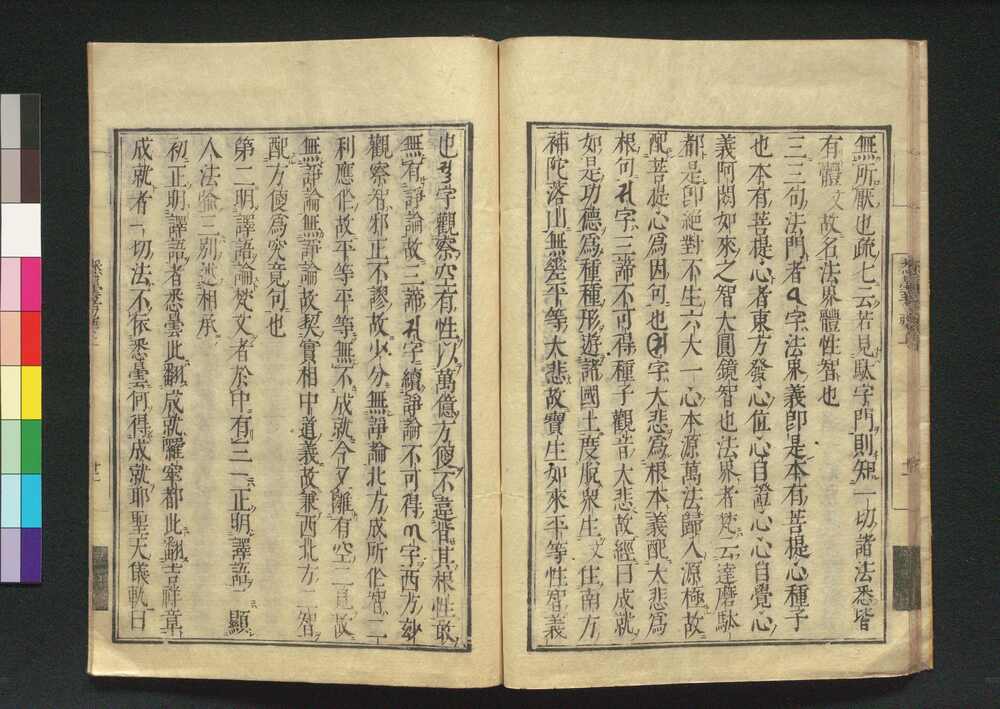 無所厭也疏七云若見駄字門則知一切諸法悉皆
有體文故名法界體性智也
三三句法門者𑖀字法界義即是本有菩提心種子
也本有菩提心者東方發心位心自證心心自覺心
義阿閦如來之智大圓鏡智也法界者梵云達磨駄
都是即絶對不生六大一心本源萬法歸入源極故
配菩提心爲因句也 字大悲爲根本義配大悲爲
根句 字三諦不可得種子觀音大悲故經曰成就
如是功德爲種種形遊諸國土度脱衆生文住南方
補陀落山無 平等大悲故寶生如來平等性智義
也 字觀察空有性以萬億方便不違背其根性敢
無有諍論故三諦 字續諍論不可得 字西方妙
觀察智邪正不謬故少分無諍論北方成所作智二
利應作故平等平等無不成就今又離有空二見故
無諍論無諍論故契實相中道義故兼西北方二智
配方便爲究竟句也
第二明譯語論梵文者於中有三一正明譯語二顯
人法 三別 相承
初正明譯語者悉曇此翻成就羅窣都此翻吉祥章
成就者一切法不依悉曇何得成就耶聖天儀軌曰